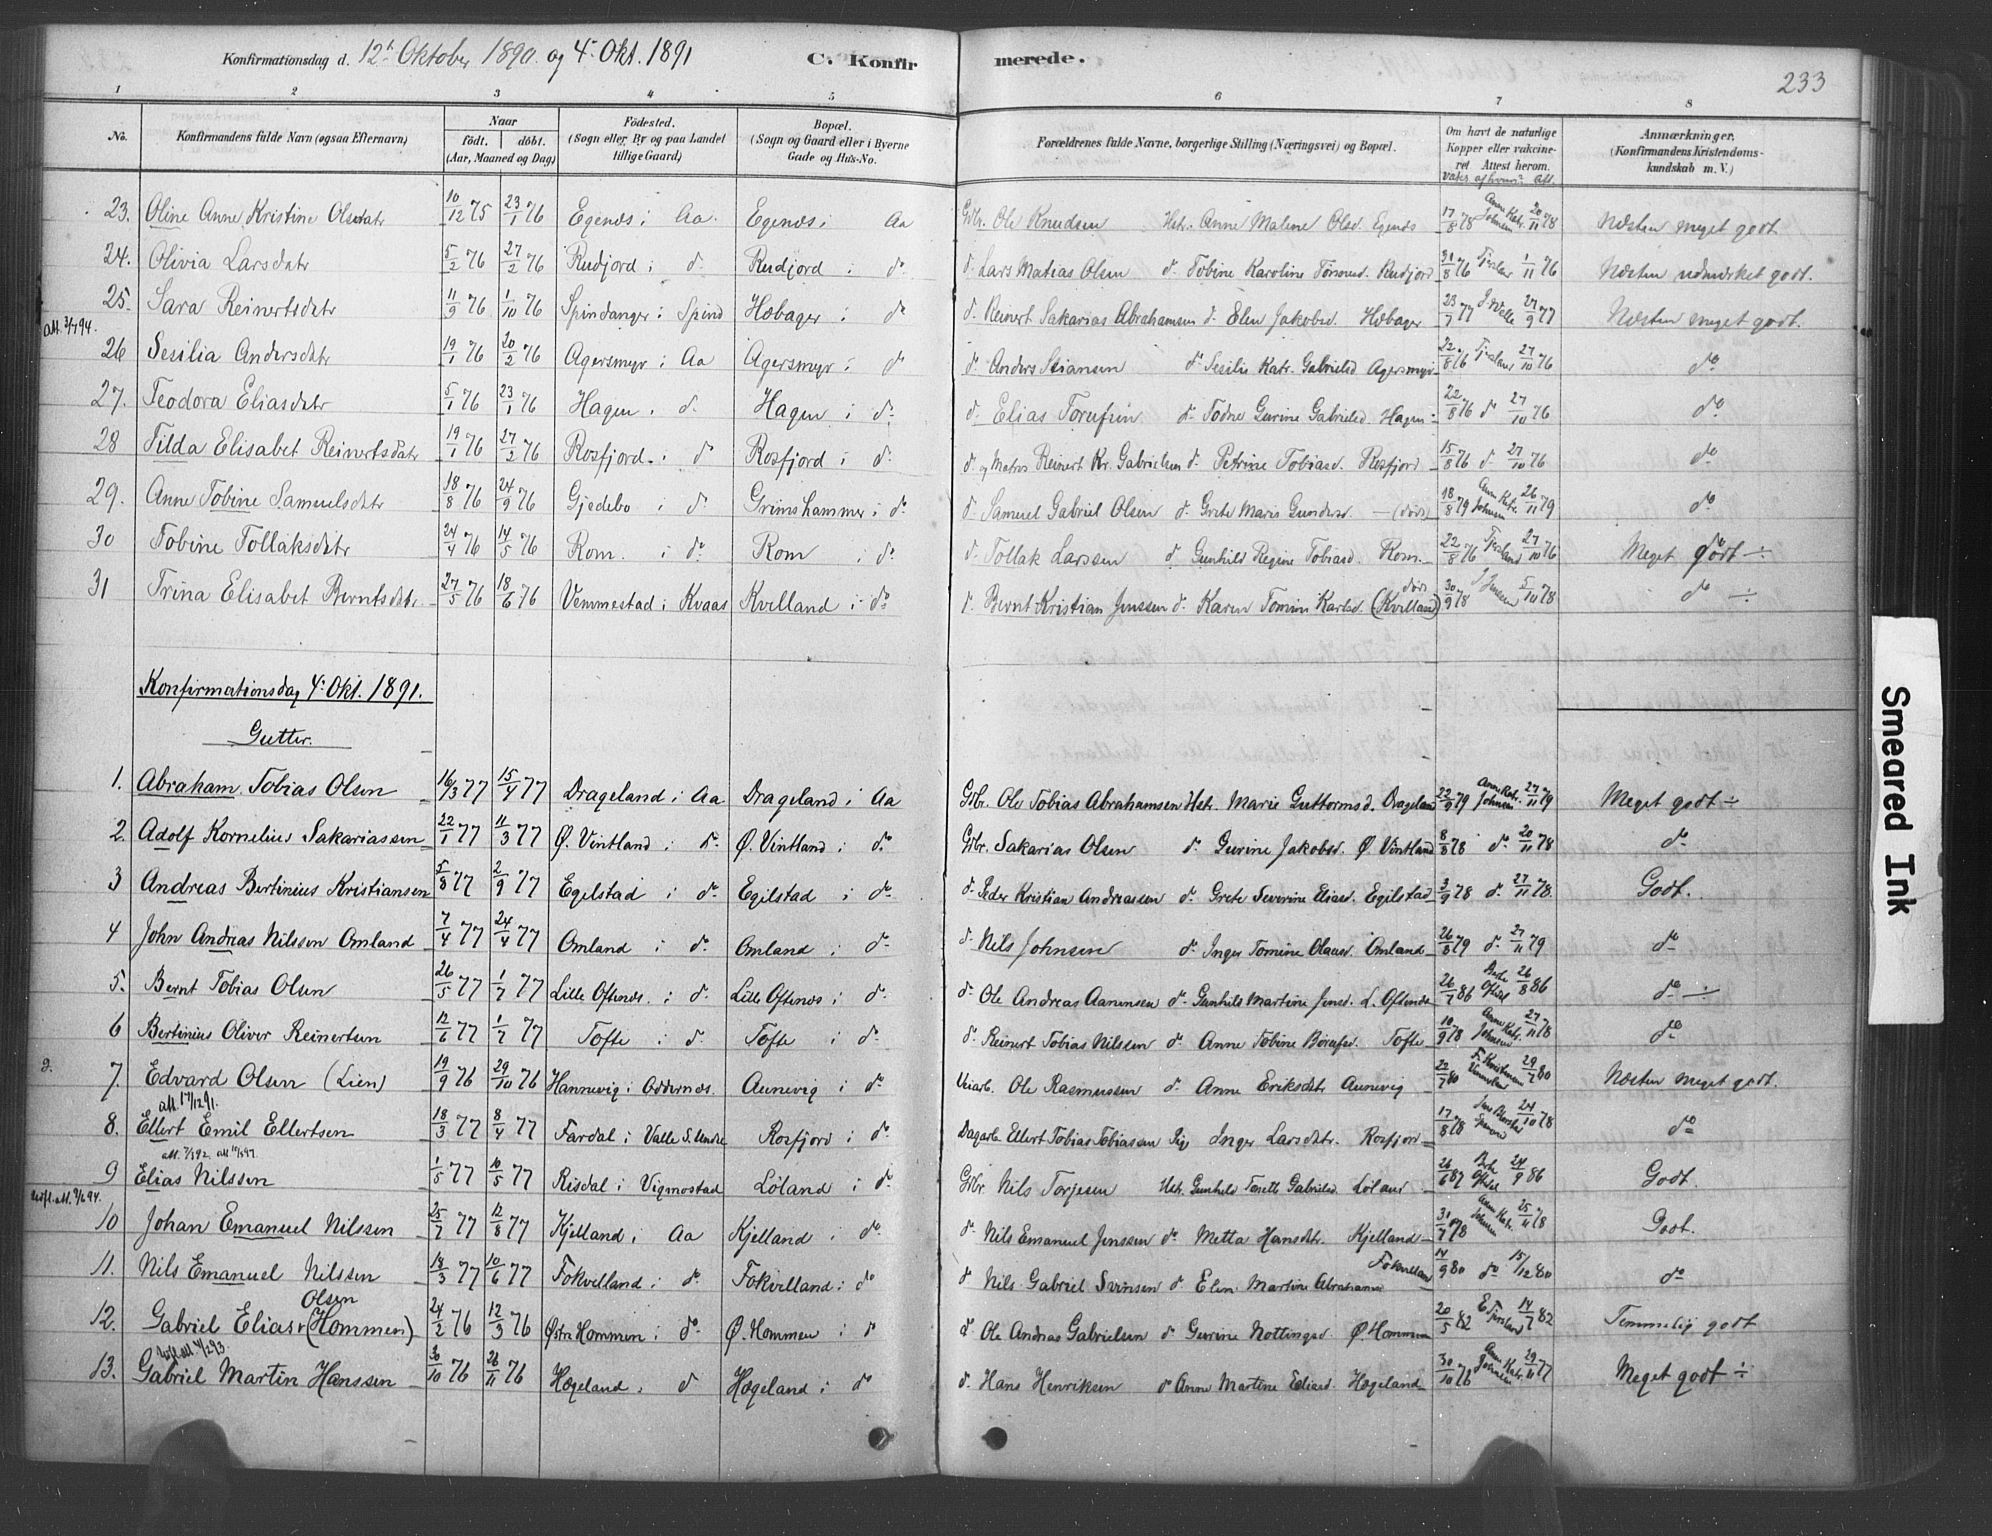 Konfirmationsdag d. 12te Oktober 1890. og 4. Okt. 1891 C. Konfirmerede. 233
1 2 3 4 5 6 7 8
No. Konfirmandens fulde Navn (ogsaa Efternavn) Naar født. døbt. (Aar, Maaned og Dag) Fødested. (Sogn eller By og paa Landet tillige Gaard) Bopæl. (Sogn og Gaard eller i Byerne Gade og Hus-No. Forældrenes fulde Navne, borgerlige Stilling (Næringsvei) og Bopæl. Om havt de naturlige Kopper eller vakcineret Attest herom. Anmærkninger. (Konfirmandens Kristendomskundskab m. V.)
vaks af hvem Att.
23. Oline Anne Kristine Olsdatr 10/12 75 23/1 76 Egenæs i Aa. Egenæs i Aa Gbr. Ole Knudsen Hstr. Anne Malene Olsd. Egenæs 17/8 78 Anne Katr. Johnsen 20/11 78 Næsten meget godt.
24. Olivia Larsdatr 5/2 76 27/2 76 Rudjord i do Rudjord i do do Lars Matias Olsen do Tobine Karoline Rudjord 31/8 76 1/11 76 Næsten udmærket godt.
25. Sara Reinertsdatr 11/9 76 1/10 76 Spindanger i Spind Hæbager i do do Reinert Sakarias Abrahamsen do Elen Jakobsd. Hæbager 23/7 77 27/9 77 Næsten meget godt.
att. 3/7 94.
26 Sesilia Andersdatr 19/1 76 20/2 76 Agersmyr i Aa Agersmyr i do do Anders Stiansen do Sesilie Katr. Gabrielsd Agersmyr 22/8 76 27/10 76 do
27. Teodora Eliasdatr 5/1 76 23/1 76 Hagen i do Hagen i do do Elias do Todne Gurine Gabrielsd. Hagen 22/8 76 do 27/10 76 do
28 Tilda Elisabet Reinertsdatr 19/1 76 27/2 76 Rosfjord i do Rosfjord i do do og Matros Reinert Kr. Gabrielsen do Petrine Tobiasd. Rosfjord 15/8 76 do 27/10 76 do
29. Anne Tobine Samuelsdatr 18/8 76 24/9 76 Gjedebo i do Grimshammer i do do Samuel Gabriel Olsen do Grete Marie Gundersd. (død) 18/8 79 Anne Katr. Johnsen 26/11 79 do
30 Tobine Tollaksdatr 24/4 76 14/5 76 Rom i do Rom i do do Tollak Larssen do Gunhild Regine Tobiasd. Rom 22/8 76 27/10 76 Meget godt ÷
31 Trina Elisabet Berntsdatr 27/5 76 18/6 76 Vemmestad i Kvaas Kvilland i do do Bernt Kristian Jenssen do Karen Tomine Karlsd. død (Kvilland) 30/9 78 J Jensen 5/10 78 do ÷
Konfirmationsdag 4. Okt. 1891.
Gutter.
1. Abraham Tobias Olsen 16/3 77 15/4 77 Drageland i Aa Drageland i Aa Gbr. Ole Tobias Abrahamsen Hstr. Marie Guttormsd. Drageland 22/9 79 Anne Katr. Johnsen 27/11 79 Meget godt ÷
2. Adolf Kornelius Sakariassen 22/1 77 11/3 77 Ø. Vintland i do Ø. Vintland i do Gbr. Sakarias Olsen do Gurine Jakobsd. Ø. Vintland 8/8 78 do 20/11 78 do
3 Andreas Bertinius Kristiansen 5/8 77 2/9 77 Egelstad i do Egilstad i do do Peder Kristian Andreassen do Grete Severine Eliasd. Egilstad 3/9 78 do 27/11 78 Godt.
4 John Andreas Nilssen Omland 7/4 77 24/4 77 Omland i do Omland i do do Nils Johnsen do Inger Tomine Olausd. Omland 26/8 79 do 27/11 79 do
5. Bernt Tobias Olsen 26/5 77 1/7 77 Lille Oftenæs i do Lille Oftenæs i do do Ole Andreas Aanensen do Gunhild Martine Jensd. L. Oftenæs 26/7 86 26/8 86 do ÷
6 Bertinius Oliver Reinertsen 12/6 77 1/7 77 Tofte i do Tofte i do do Reinert Tobias Nilssen do Anne Tobine Tofte 10/9 78 Anne Katr. Johnsen 27/11 78 do
7. Edvard Olsen (Lien) 19/9 76 29/10 76 Hannevig i Oddernæs. Aunevig i do Ole Rasmussen do Anne Eriksdtr Aunevig 22/7 80 29/7 80 Næsten meget godt.
att. 17/12 91.
8. Ellert Emil Ellertsen 18/3 77 8/4 77 Fardal i Valle S. Undre Rosfjord i do Dagarb. Ellert Tobias Tobiassen Pig Inger Larsdtr. Rosfjord 17/8 78 24/10 78 do
9 Elias Nilssen 1/5 77 10/5 77 Risdal i Vigmostad Løland i do Gbr. Nils Torjesen Hstr. Gunhild Gabrielsd Løland 26/6 87 24/9 86 Godt.
10 Johan Emanuel Nilssen 25/7 77 12/8 77 Kjelland i Aa Kjelland i do do Nils Emanuel Jenssen do Metta Hansdtr. Kjelland 31/7 78 Anne Katr. Johnsen 25/11 78 Godt.
11. Nils Emanuel Nilssen 18/3 77 10/6 77 Fokvilland i do Fokvilland i do do Nils Gabriel Svensen do Elen Martine Abrahamsd Fokvilland 14/9 80 do 15/12 80 do
12. Gabriel Elias Olsen (Hommen) 24/2 76 12/3 76 Østre Hommen i do Ø. Hommen i do do Ole Andreas Gabrielsen do Gurine Nottingsd. Ø Hommen 20/5 82 14/7 82 Temmelig godt
13. Gabriel Martin Hanssen 30/10 76 26/11 76 Hægeland i do Hægeland i do do Hans Henriksen do Anne Martine Hægeland 30/10 76 Anne Katr. Johnsen 29/11 77 Meget godt ÷
Smeared Ink